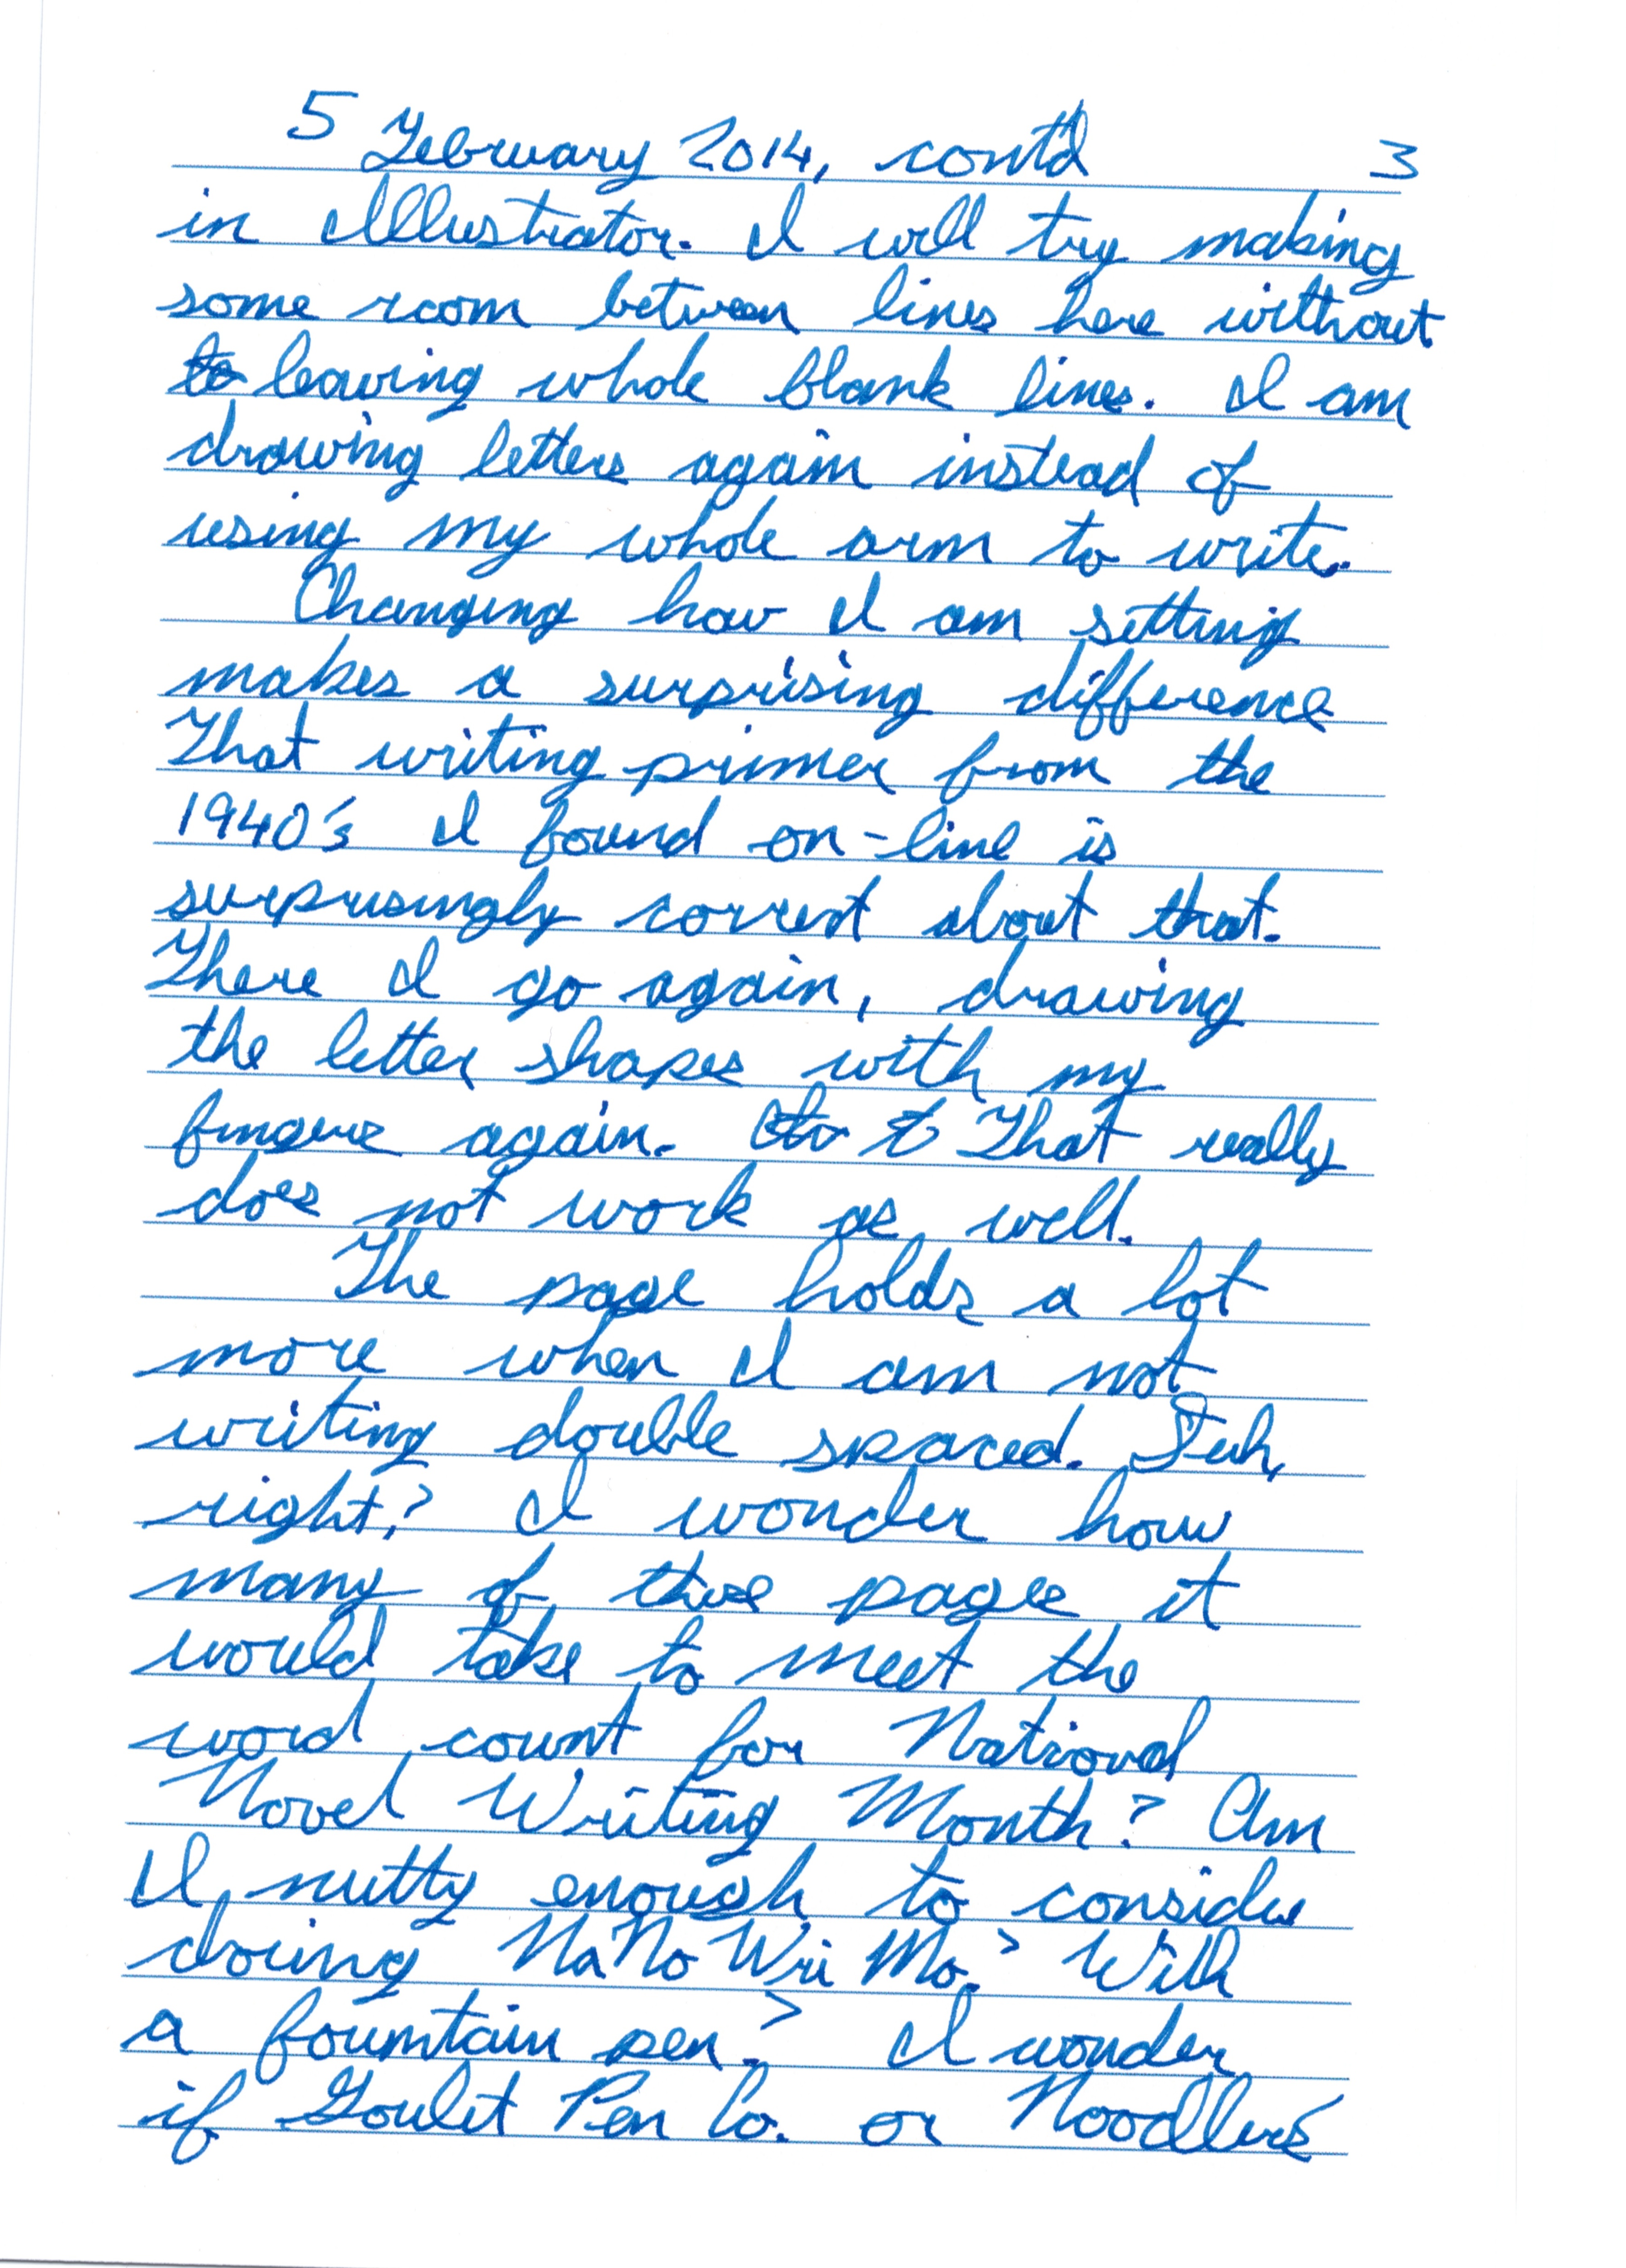 5 February 2014, cont'd 3
in Illustrator. I will try making
some room between lines here without
to leaving whole blank lines. I am
drawing letters again instead of
using my whole arm to write.
Changing how I am sitting
makes a surprising difference
That writing primer from the
1940's I found on-line is
surprisingly correct about that.
There I go again, drawing
the letter shapes with my
fingers again. That really
does not work as well.
The page holds a lot
more when I am not
writing double spaced. Duh,
right? I wonder how
many of these pages it
would take to meet the
word count for National
Novel Writing Month? Am
I nutty enough to consider
doing NaNoWriMo? With
a fountain pen? I wonder
if Goulet Pen Co. or Noodler's